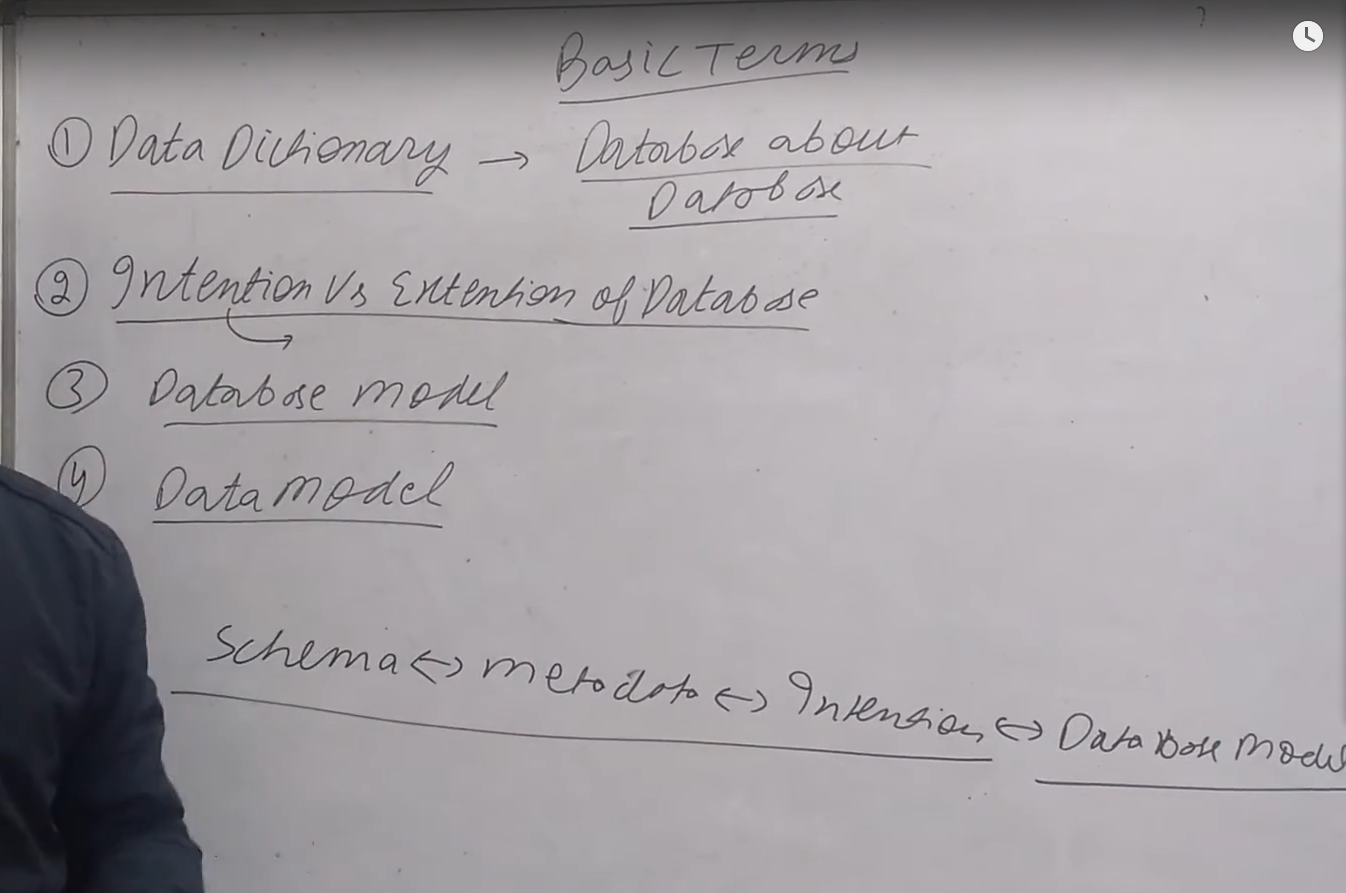 Basic Terms
① Data Dictionary → Database about
Database
② Intention Vs Extention of Database
③ Database model
④ Data model
Schema ↔ metadata ↔ Intension ↔ Database model